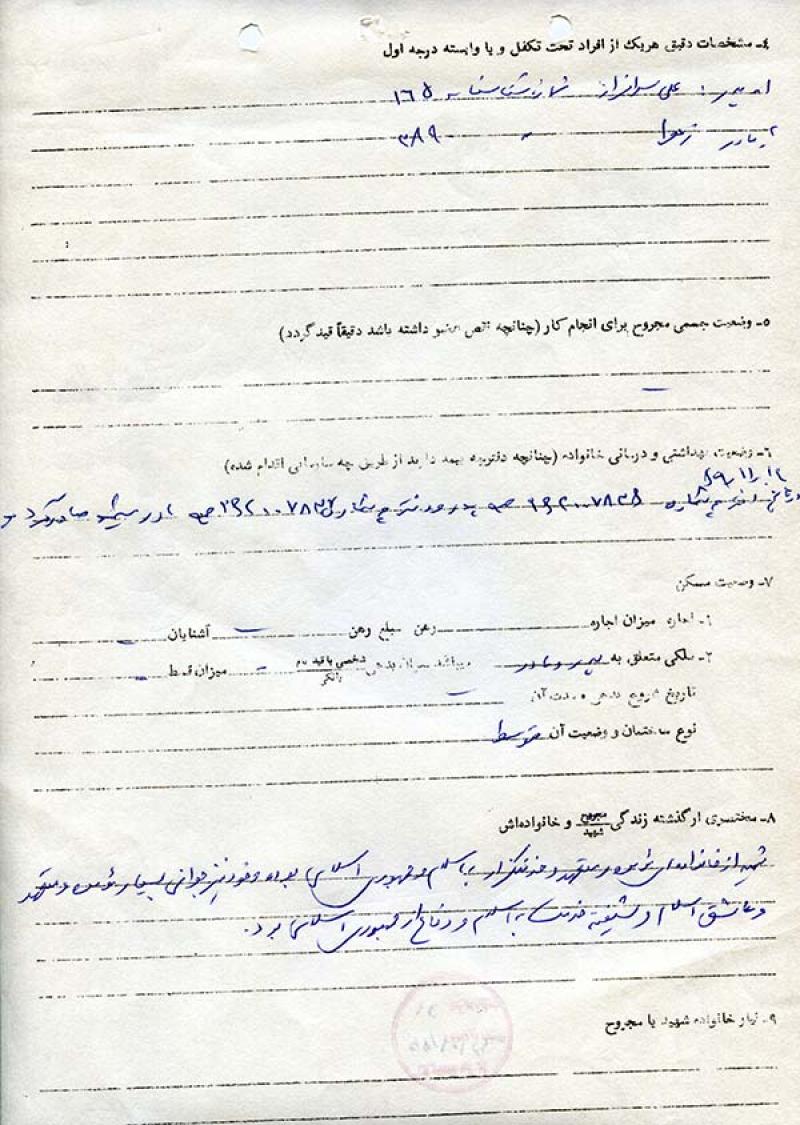 ۴ـ مشخصات دقیق هریک از افراد تحت تکفل و یا وابسته درجه اول
۱ـ پدر: علی سرافراز شماره شناسنامه ۱۶۵
۲ـ مادر زهرا " ۳۸۹
۵ـ وضعیت جسمی مجروح برای انجام کار (چنانچه نقص عضو داشته باشد دقیقاً قید گردد)
ـ
۶ـ وضعیت بهداشتی و درمانی خانواده (چنانچه دفترچه بیمه دارند از طریق چه سازمانی اقدام شده)
پدر و دفترچه شماره مادر صادر گردد
۷ـ وضعیت مسکن
۱ـ اجاره میزان اجاره رهن مبلغ رهن ـ آشنایان ـ
۲ـ ملکی متعلق به پدر و مادر میباشد میزان بدهی شخصی با قید نام بانکی ـ میزان قسط ـ
تاریخ شروع بدهی و مدت آن ـ
نوع ساختمان و وضعیت آن متوسط
۸ـ مختصری از گذشته زندگی مجروح شهید و خانواده‌اش
شهید از خانواده‌ای مؤمن و متعهد و خدمتگزار باسلام و جمهوری اسلامی بوده و خود نیز جوانی بسیار مؤمن و متعهد
و عاشق اسلام و شیفته خدمت به اسلام و دفاع از جمهوری اسلامی بود.
۹ـ نیاز خانواده شهید یا مجروح